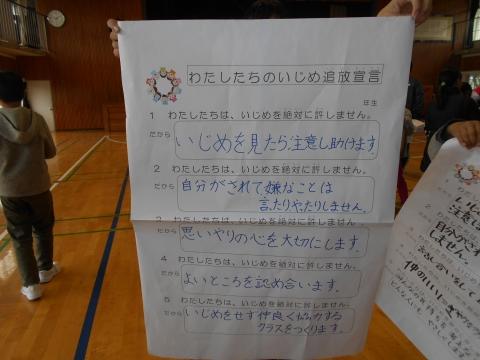 わたしたちのいじめ追放宣言
年生
1 わたしたちは、いじめを絶対に許しません。
だから
いじめを見たら注意し助けます。
2 わたしたちは、いじめを絶対に許しません。
だから
自分がされて嫌なことは
言ったりやったりしません。
3 わたしたちは、いじめを絶対に許しません。
だから
思いやりの心を大切にします。
4 わたしたちは、いじめを絶対に許しません。
だから
よいところを認め合います。
5 わたしたちは、いじめを絶対に許しません。
だから
いじめをせず仲良く協力する
クラスをつくります。
自分がされ
しません。